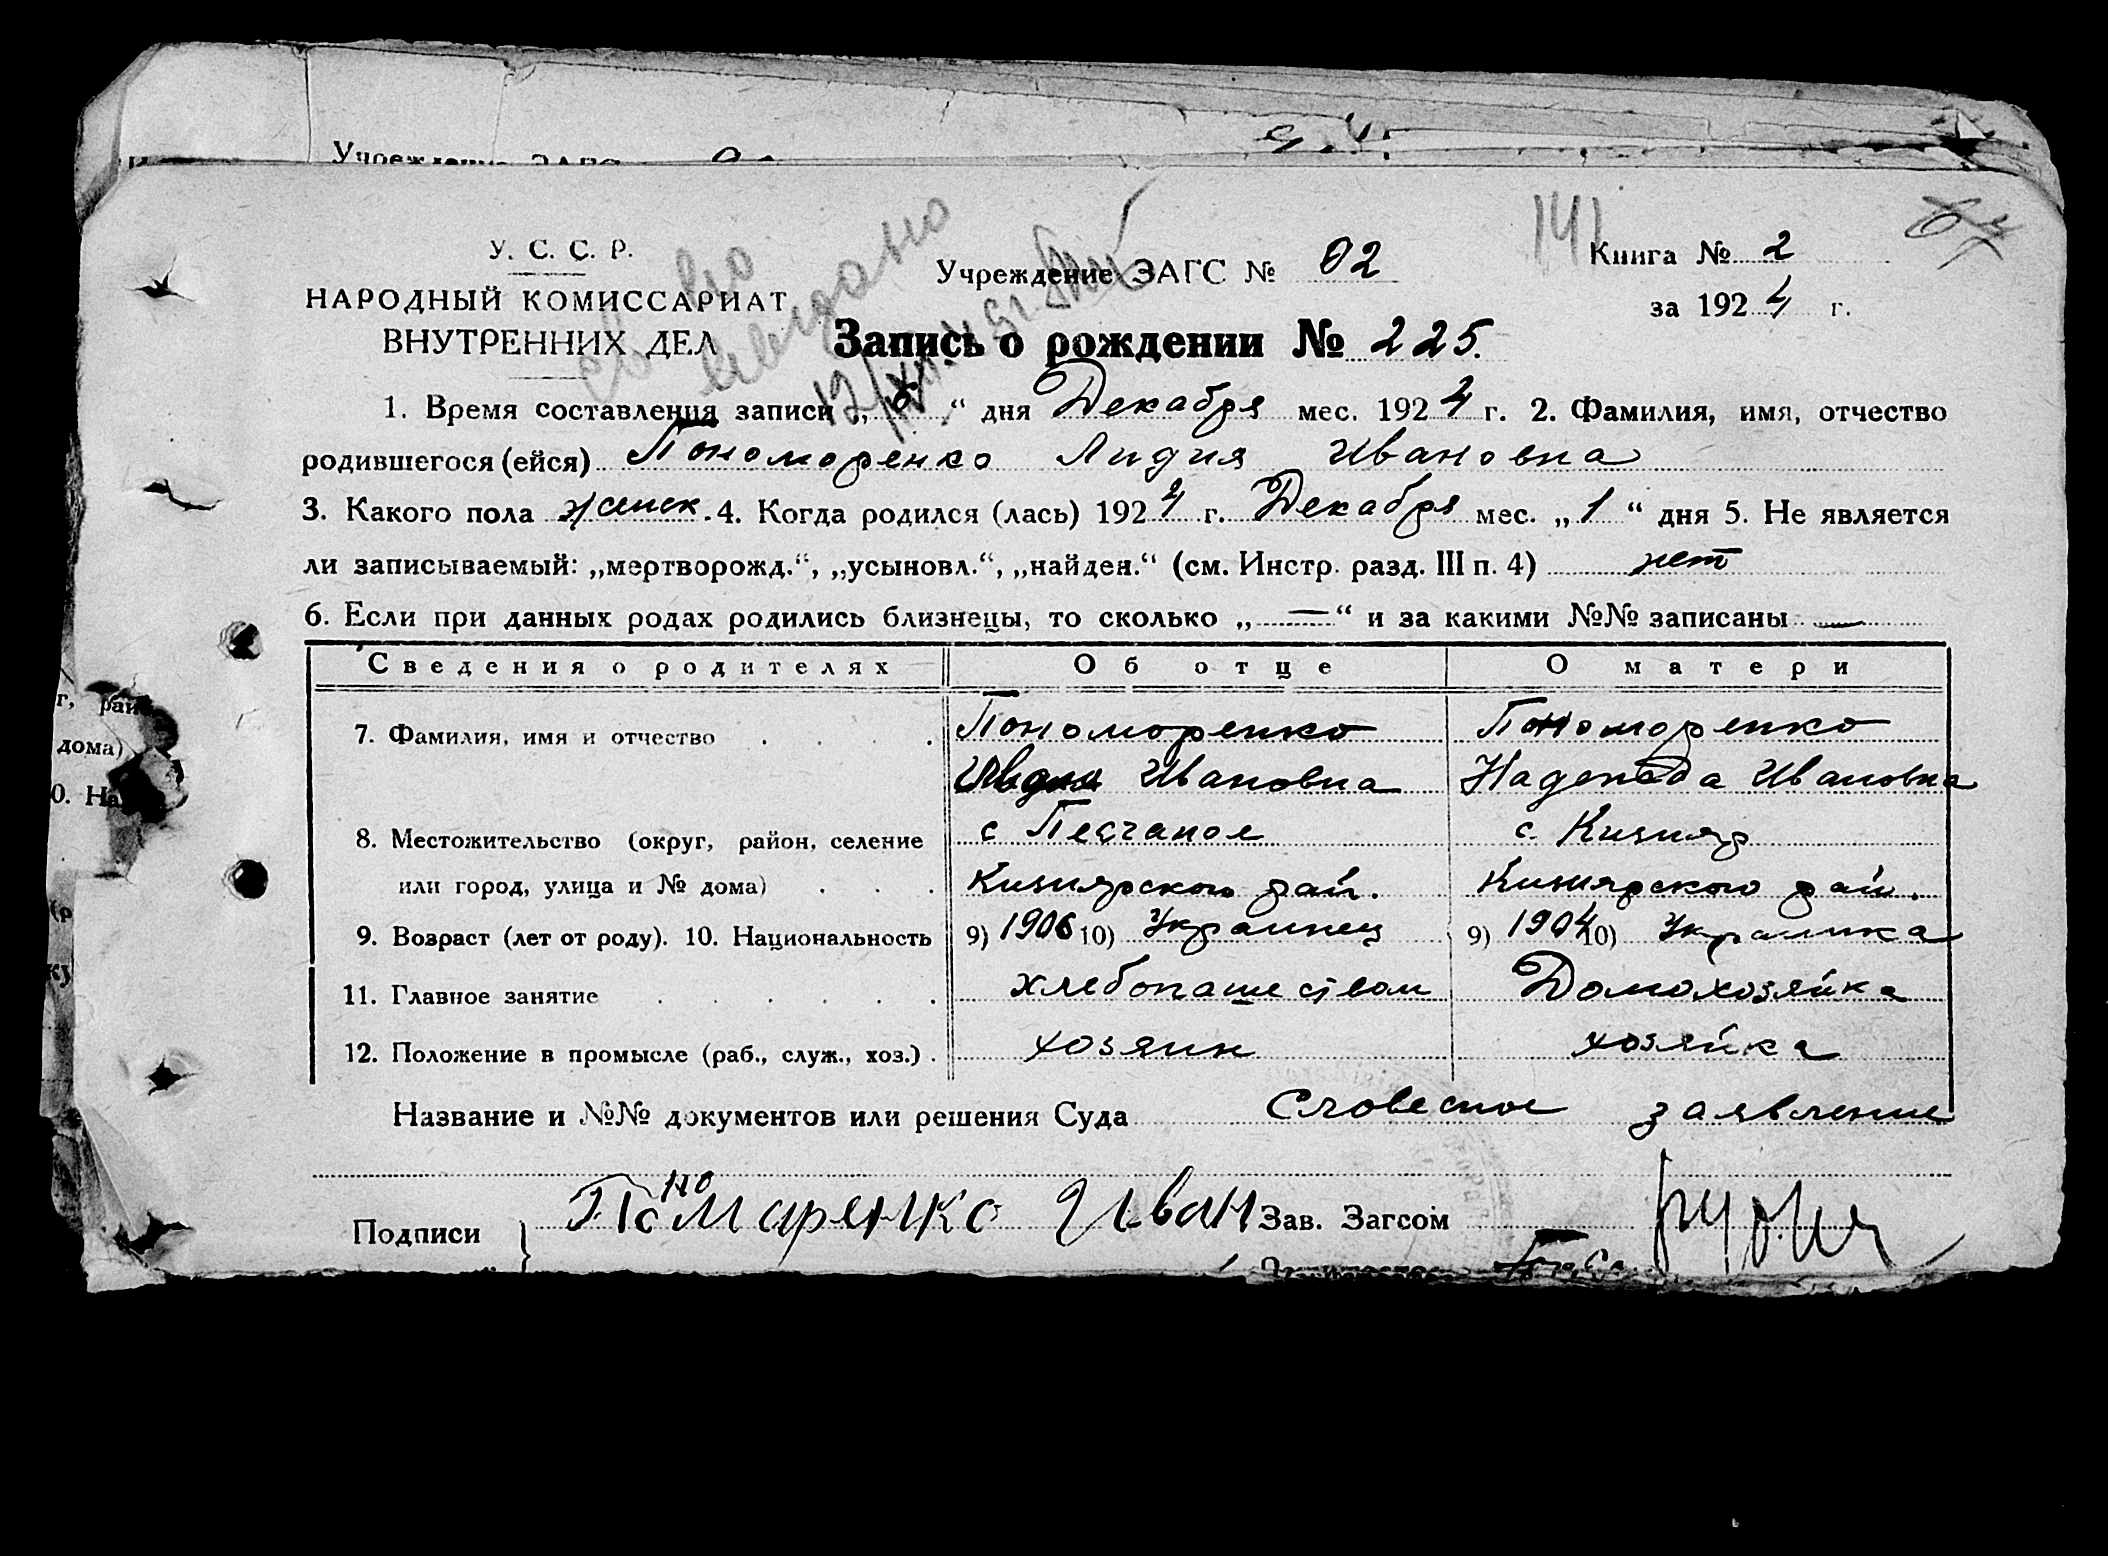 Учреждение ЗАГС
У. С. С. Р.
НАРОДНЫЙ КОМИССАРИАТ
ВНУТРЕННИХ ДЕЛ
Учреждение ЗАГС № 02
141
Книга № 2
за 1924 г.
Запись о рождении № 225.
1. Время составления записи „ “ дня Декабря мес. 1924 г. 2. Фамилия, имя, отчество
родившегося (ейся) Пономоренко Лидия Ивановна
3. Какого пола женск. 4. Когда родился (лась) 1924 г. Декабря мес. „1“ дня 5. Не является
ли записываемый: „мертворожд.“, „усыновл.“, „найден.“ (см. Инстр. разд. III п. 4) нет
6. Если при данных родах родились близнецы, то сколько „—“ и за какими №№ записаны —
Сведения о родителях Об отце О матери
7. Фамилия, имя и отчество Пономоренко Пономоренко
Ивановна Надежда Ивановна
8. Местожительство (округ, район, селение с Песчаное с. Кизияр
или город, улица и № дома) Кизиярского рай. Кизиярского рай.
9. Возраст (лет от роду). 10. Национальность 9) 1906 10) Украинец 9) 1904 10) Украинка
11. Главное занятие хлебопашеством Домохозяйка
12. Положение в промысле (раб., служ., хоз.) хозяин хозяйка
Название и №№ документов или решения Суда Словесное заявление
Подписи Пономаренко Иван Зав. Загсом
г, рай
дома)
0. На